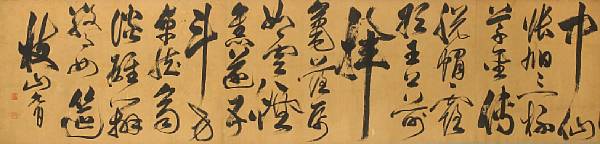 中仙
張旭三杯
草聖傳
脫帽露
頂王公前
揮
毫落紙
如雲煙
焦遂五
斗方
卓然高
談雄辯
驚四筵
枝山書